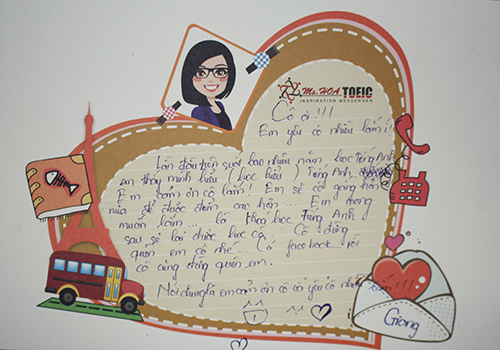 Ms.HOA TOEIC
INSPIRATION MESSENGER
Cô ơi !!!
Em yêu cô nhiều lắm !
Lần đầu tiên suốt bao nhiêu năm học Tiếng Anh
em thấy mình hiểu ( học hiểu ) Tiếng Anh,
Em cảm ơn cô lắm ! Em sẽ cố gắng hơn
nữa để được điểm cao hơn .... Em mong
muốn lắm ... là khoá học Tiếng Anh
sau sẽ lại được học cô. Cô đừng
quên em cô nhé. Có facebook rồi
cô cũng đừng quên em.
Nói chung là em cảm ơn cô và yêu cô nhiều lắm !!!
Giang